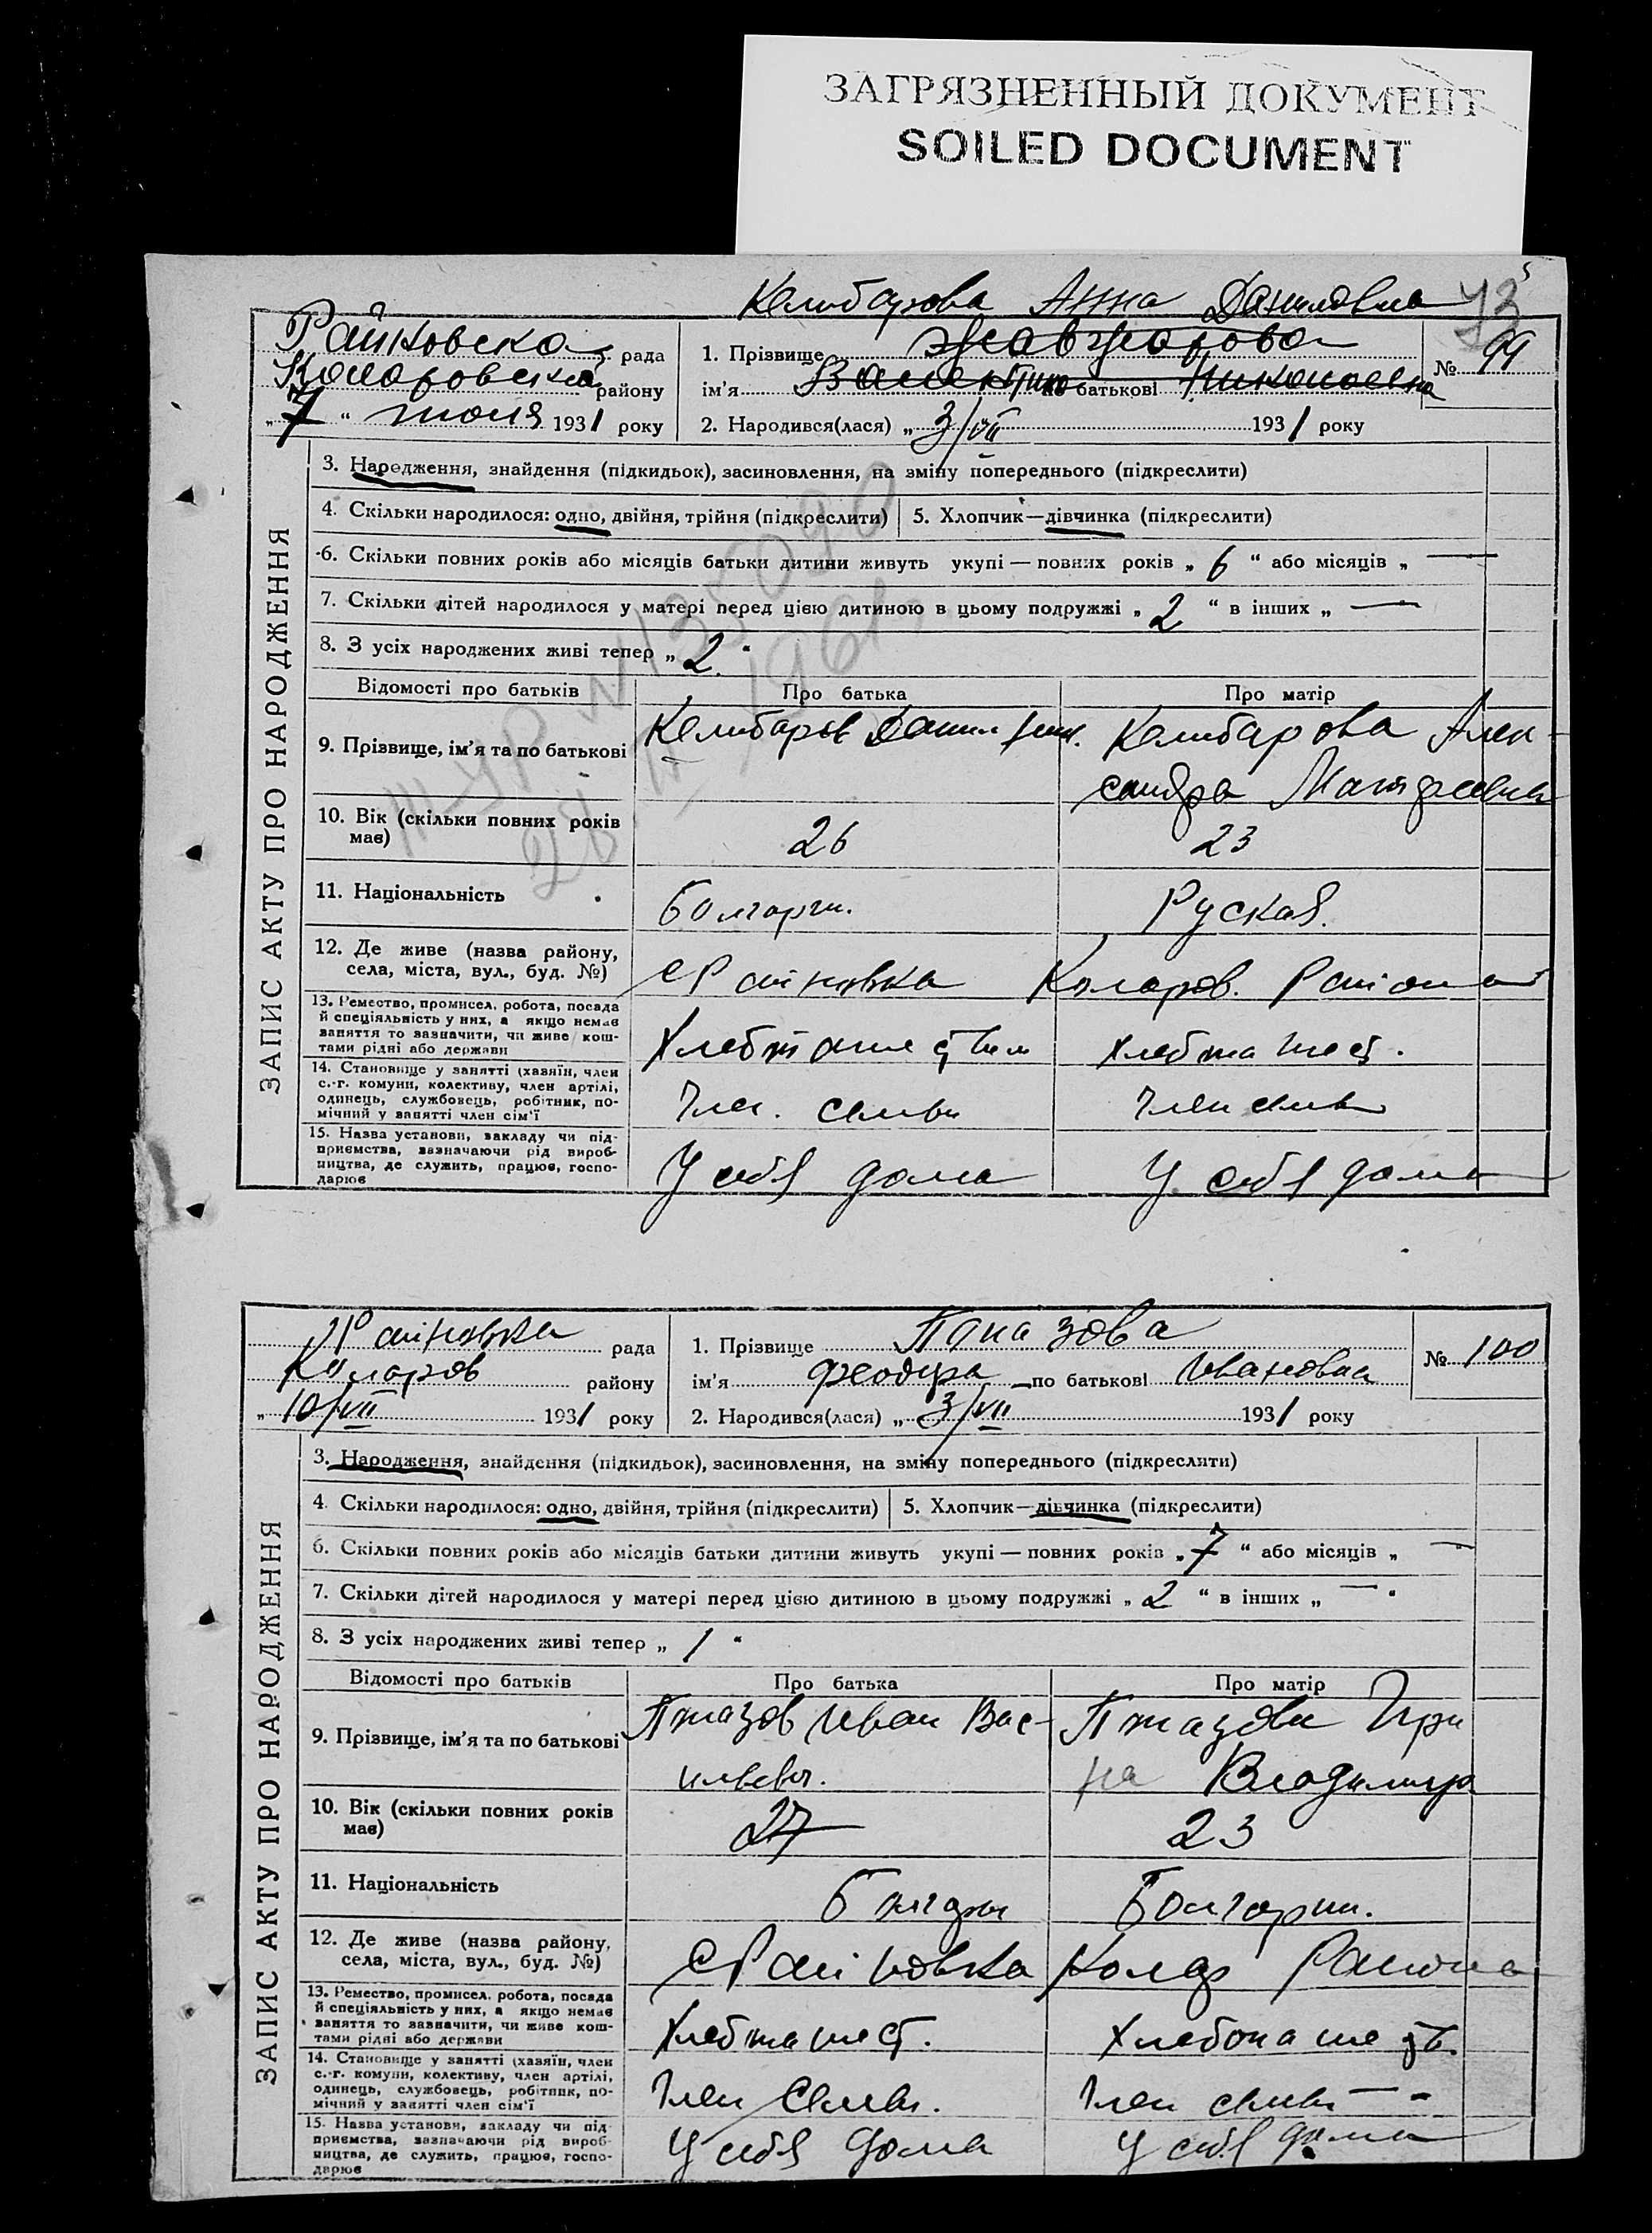 ЗАГРЯЗНЕННЫЙ ДОКУМЕНТ
SOILED DOCUMENT
Келибарова Анна Даниловна
73
Райновска рада
Коларовска району
„7“ июля 1931 року
1. Прізвище
ім'я Валентина по батькові Николаевна
№ 99
2. Народився(лася) „3/VII 1931 року
ЗАПИС АКТУ ПРО НАРОДЖЕННЯ
3. Народження, знайдення (підкидьок), засиновлення, на зміну попереднього (підкреслити)
4. Скільки народилося: одно, двійня, трійня (підкреслити) 5. Хлопчик—дівчинка (підкреслити)
6. Скільки повних років або місяців батьки дитини живуть укупі — повних років „6“ або місяців „ —
7. Скільки дітей народилося у матері перед цією дитиною в цьому подружжі „2“ в інших „ —
8. З усіх народжених живі тепер „2“
Відомості про батьків Про батька Про матір
9. Прізвище, ім'я та по батькові Келибаров Данил Келибарова Алек-
сандра Матфеевна
10. Вік (скільки повних років має) 26 23
11. Національність Болгарин. Руская.
12. Де живе (назва району, села, міста, вул., буд. №) с Райновка Коларов. Района
13. Ремество, промисел, робота, посада й спеціяльність у них, а якщо немає заняття то зазначити, чи живе коштами рідні або держави Хлебопашест.
14. Становище у занятті (хазяїн, член с.-г. комуни, колективу, член артілі, одинець, службовець, робітник, помічний у занятті член сім'ї Член семьи Член семьи
15. Назва установи, закладу чи підприємства, зазначаючи рід виробництва, де служить, працює, господарює У себя дома У себя дома
Райновка рада
Коларов району
„10/VII 1931 року
1. Прізвище
ім'я Феодора по батькові Ивановна
№ 100
2. Народився(лася) „3/VII 1931 року
ЗАПИС АКТУ ПРО НАРОДЖЕННЯ
3. Народження, знайдення (підкидьок), засиновлення, на зміну попереднього (підкреслити)
4. Скільки народилося: одно, двійня, трійня (підкреслити) 5. Хлопчик—дівчинка (підкреслити)
6. Скільки повних років або місяців батьки дитини живуть укупі — повних років „7“ або місяців „ —
7. Скільки дітей народилося у матері перед цією дитиною в цьому подружжі „2“ в інших „ — “
8. З усіх народжених живі тепер „1“
Відомості про батьків Про батька Про матір
9. Прізвище, ім'я та по батькові Иван Вас- Ири
ильевич. на Владимир
10. Вік (скільки повних років має) 27 23
11. Національність Болгарин Болгарин.
12. Де живе (назва району, села, міста, вул., буд. №) с Райновка Колар Района
13. Ремество, промисел, робота, посада й спеціяльність у них, а якщо немає заняття то зазначити, чи живе коштами рідні або держави Хлебопашест. Хлебопашеств.
14. Становище у занятті (хазяїн, член с.-г. комуни, колективу, член артілі, одинець, службовець, робітник, помічний у занятті член сім'ї Член семьи. Член семьи
15. Назва установи, закладу чи підприємства, зазначаючи рід виробництва, де служить, працює, господарює У себя дома У себя дома